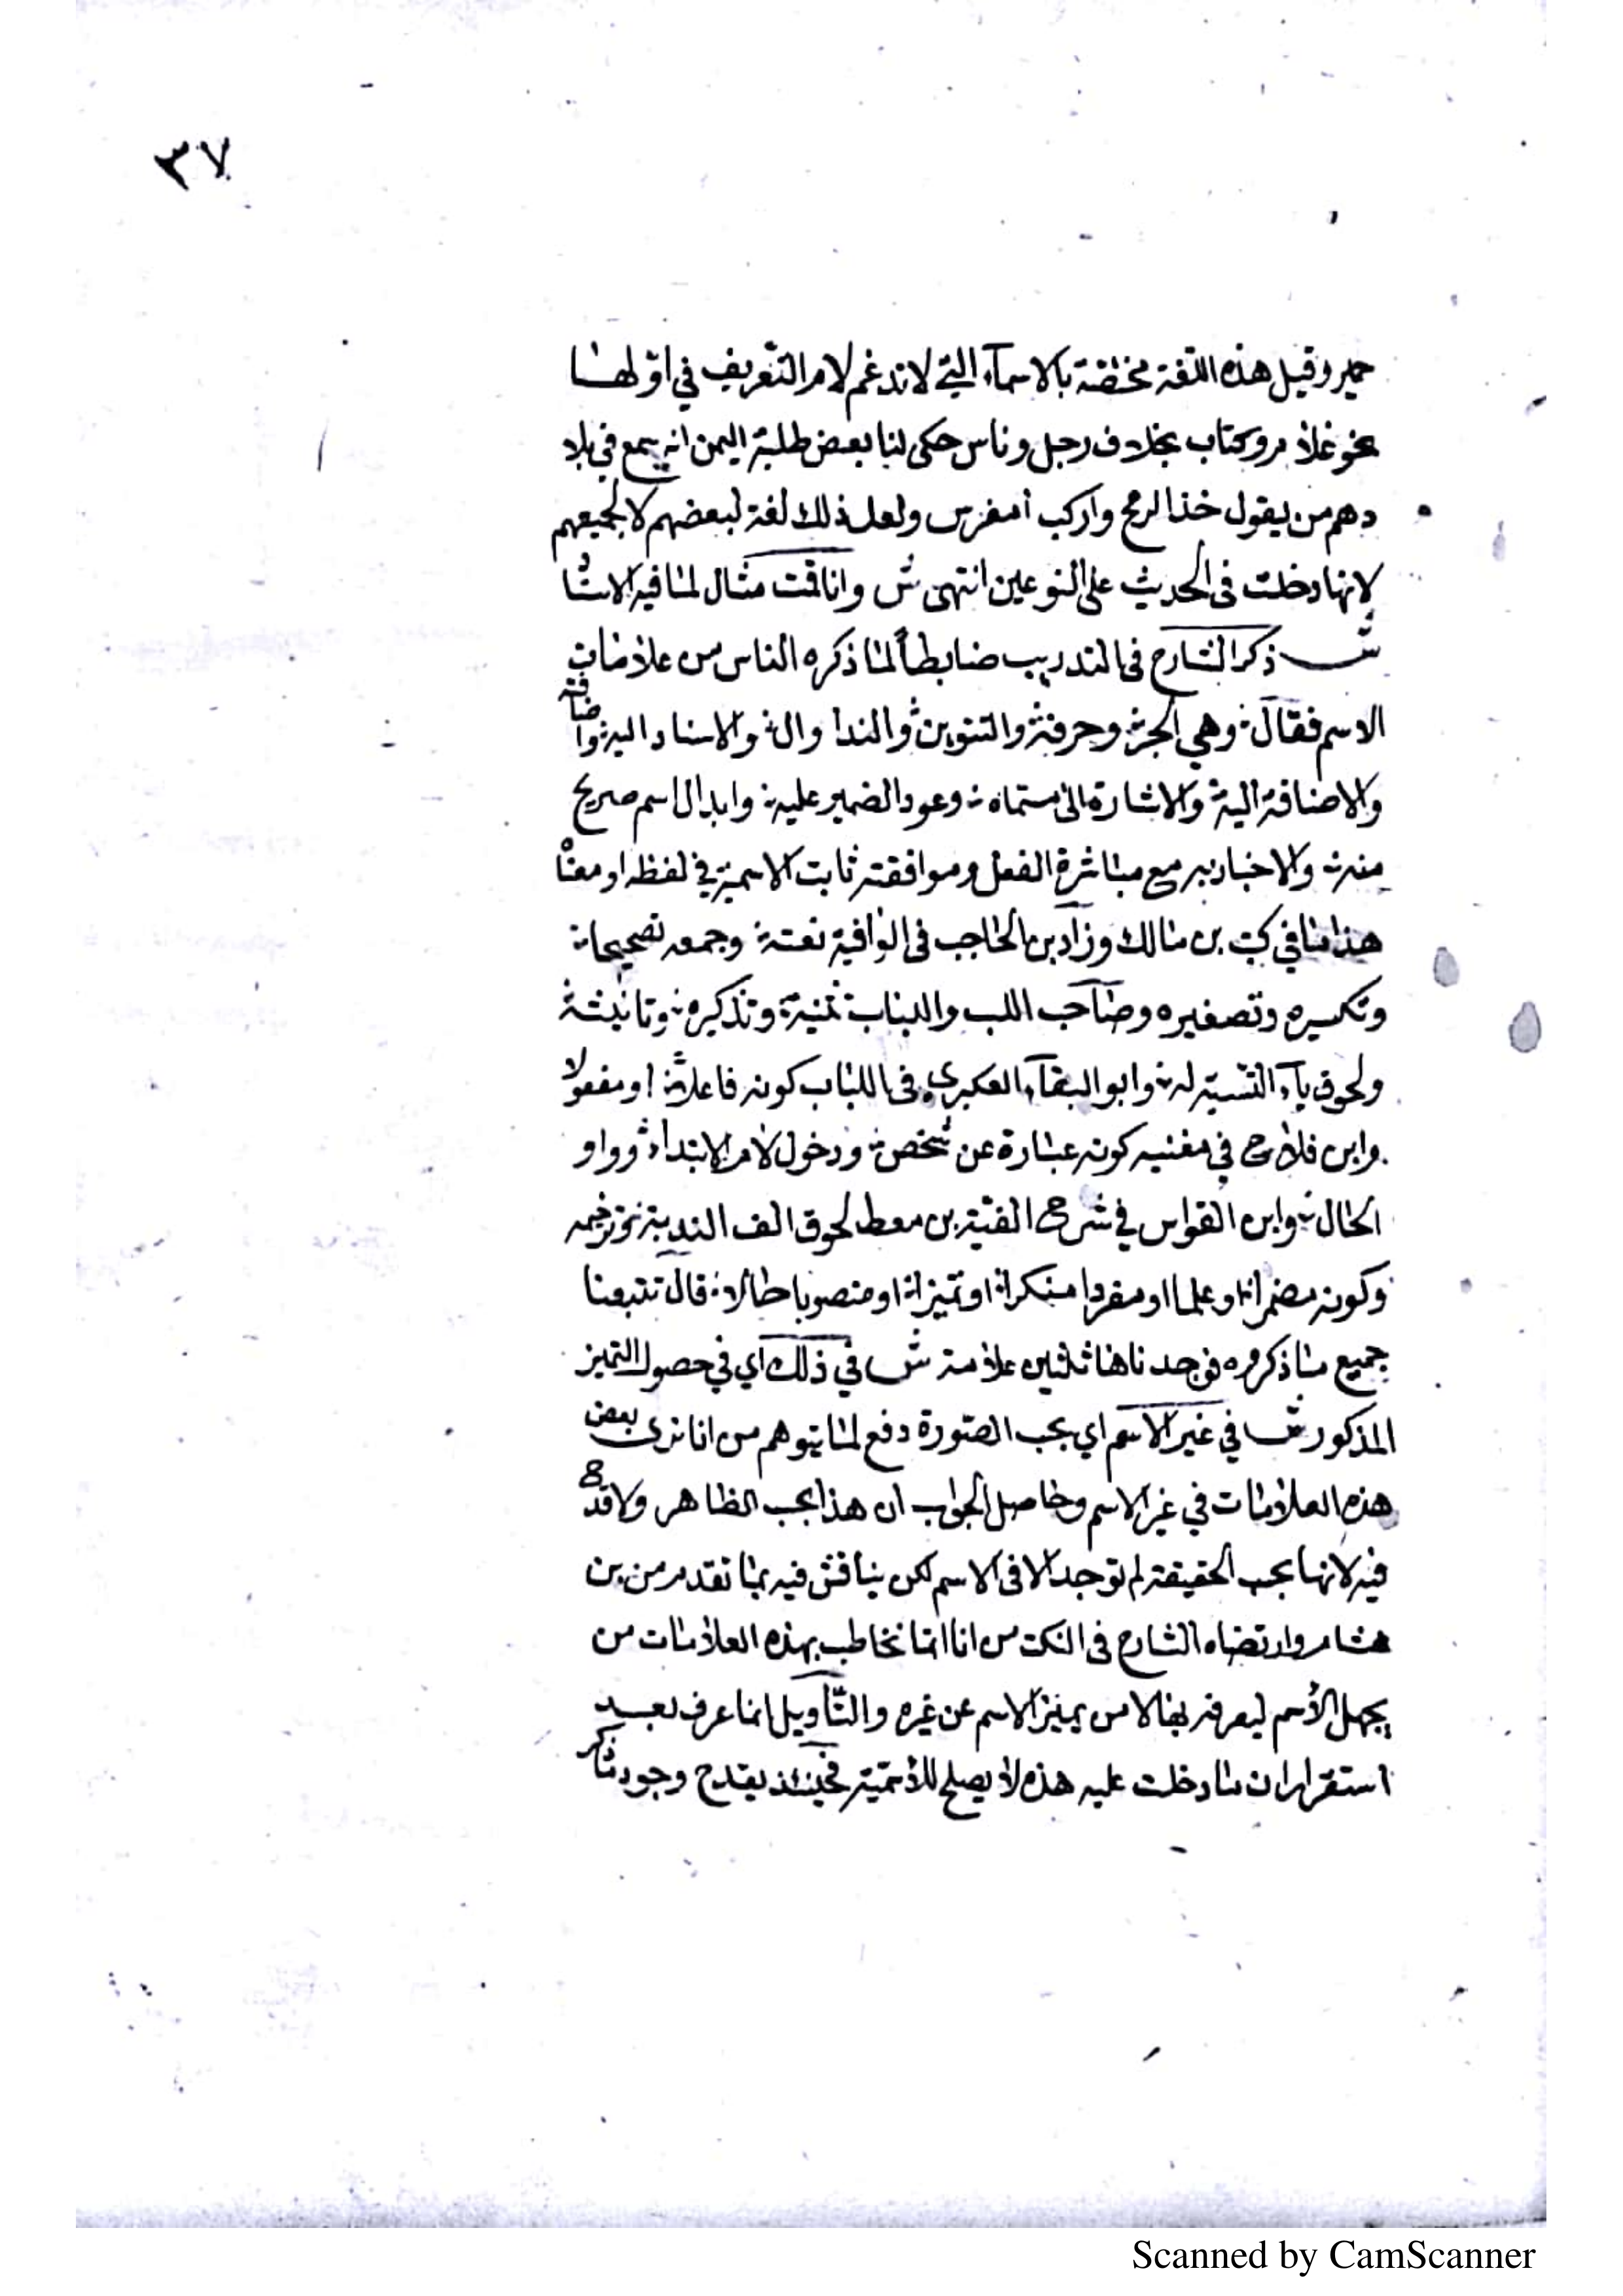 ٣٧
حمير وقيل هذه اللغة مختصة بالاسمآء التي لا تدغم لام التعريف في اوّلها
نحو غلام وكتاب بخلاف رجل وناس حكى لنا بعض طلبة اليمن انه يسمع في بلا
دهم من يقول خذ الرمح واركب امفرس ولعل ذلك لغة لبعضهم لا لجميعهم
لانها دخلت فى الحديث على النوعين انتهى ش وانا قمت مثال لما فيه الاسنا
ش ذكر الشارح فى التدريب ضابطاً لما ذكره الناس من علامات
الاسم فقال وهي الجر وحرفه والتنوين والندا وال والاسناد اليه واضافته
والاضافة اليه والاشارة الى مسماه وعود الضمير عليه وابدال اسم صريح
منه والاخبار به مع مباشرة الفعل وموافقته ثابت الاسمية في لفظه او معنا
هذا ما في كتب بن مالك وزاد بن الحاجب فى الوافية نعته وجمعه تصحيحا
وتكسيره وتصغيره وصاحب اللب واللباب تثنيته وتذكيره وتانيثه
ولحوق يآء النسبة له وابو البقآء العكبري فى اللباب كونه فاعلا او مفعولا
وابن فلاح في مغنيه كونه عبارة عن شخص ودخول لام الابتداء وواو
الحال وابن القواس في شرح الفية بن معط لحوق الف الندبة نحو ترخيمه
وكونه مضمرا او علما او مفردا منكرا او تميزا او منصوبا حالا قال تتبعنا
جميع ما ذكروه فوجدناها ثلثين علامة ش في ذلك اي في حصول التميز
المذكور ش في غير الاسم اي بحب الصورة دفع لما يتوهم من انا نرى بعض
هذه العلامات في غير الاسم وحاصل الجواب ان هذا بحب الظاهر ولا قدح
فيه لانها بحب الحقيقة لم توجد الا فى الاسم لكن يناقش فيه بما تقدم من بن
هشام وارتضاه الشارح فى النكت من انا انما نخاطب بهذه العلامات من
يجهل الاسم ليعرفه بها لا من يميز الاسم عن غيره والتأويل انما عرف بعد
استقرار ان ما دخلت عليه هذه لا يصلح للاسمية فحينئذ يقدح وجود ما ذكر
Scanned by CamScanner